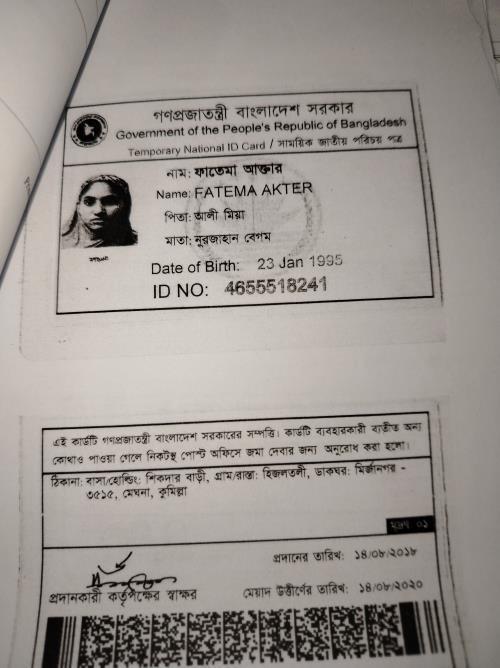 গণপ্রজাতন্ত্রী বাংলাদেশ সরকার
Government of the People's Republic of Bangladesh
Temporary National ID Card / সাময়িক জাতীয় পরিচয় পত্র
নাম: ফাতেমা আক্তার
Name: FATEMA AKTER
পিতা: আলী মিয়া
মাতা: নুরজাহান বেগম
Date of Birth: 23 Jan 1995
ID NO: 4655518241
এই কার্ডটি গণপ্রজাতন্ত্রী বাংলাদেশ সরকারের সম্পত্তি। কার্ডটি ব্যবহারকারী ব্যতীত অন্য
কোথাও পাওয়া গেলে নিকটস্থ পোস্ট অফিসে জমা দেবার জন্য অনুরোধ করা হলো।
ঠিকানা: বাসা/হোল্ডিং: শিকদার বাড়ী, গ্রাম/রাস্তা: হিজলতলী, ডাকঘর: মির্জানগর -
৩৫১৫, মেঘনা, কুমিল্লা
প্রদানের তারিখ: ১৪/০৮/২০১৮
প্রদানকারী কর্তৃপক্ষের স্বাক্ষর
মেয়াদ উত্তীর্ণের তারিখ: ১৪/০৮/২০২০